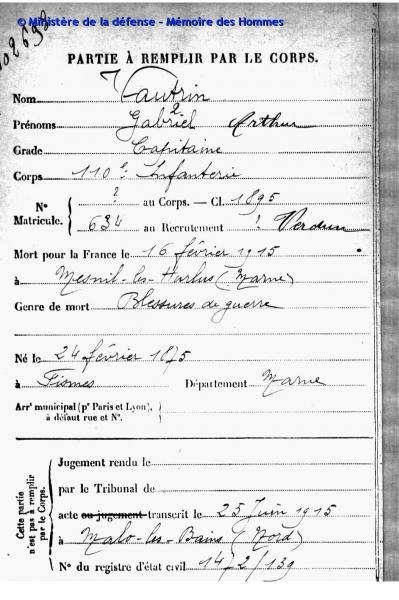 © Ministère de la défense - Mémoire des Hommes
PARTIE À REMPLIR PAR LE CORPS.
Nom Vautrin
Prénoms Gabriel Arthur
Grade Capitaine
Corps 110e Infanterie
N° Matricule. { ? au Corps. — Cl. 1895
634 au Recrutement ? Verdun
Mort pour la France le 16 février 1915
à Mesnil-les-Hurlus (Marne)
Genre de mort Blessures de guerre
Né le 24 février 1875
à Fismes Département Marne
Arrt municipal (pr Paris et Lyon),
à défaut rue et N°.
Cette partie n'est pas à remplir par le Corps.
Jugement rendu le
par le Tribunal de
acte ou jugement transcrit le 25 Juin 1915
à Malo-les-Bains (Nord)
N° du registre d'état civil 1472/139